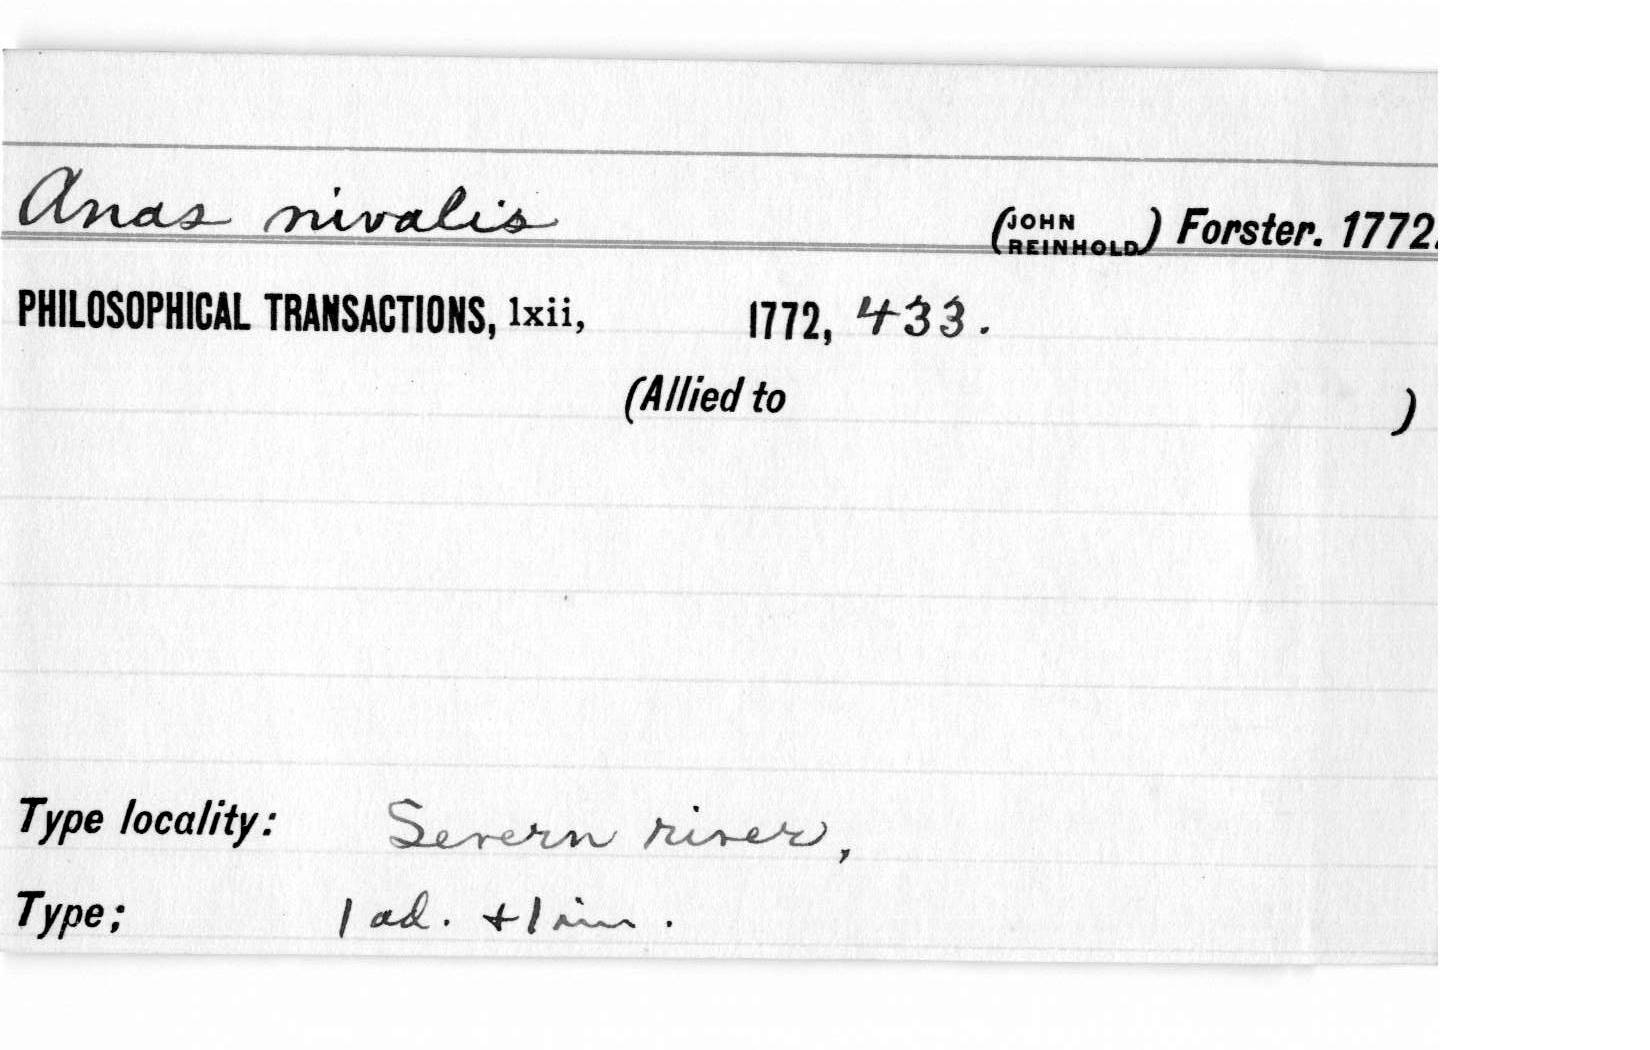 Anas nivalis (JOHN REINHOLD) Forster. 1772.
PHILOSOPHICAL TRANSACTIONS, lxii, 1772, 433.
(Allied to )
Type locality: Severn river,
Type; 1 ad. + 1 im.